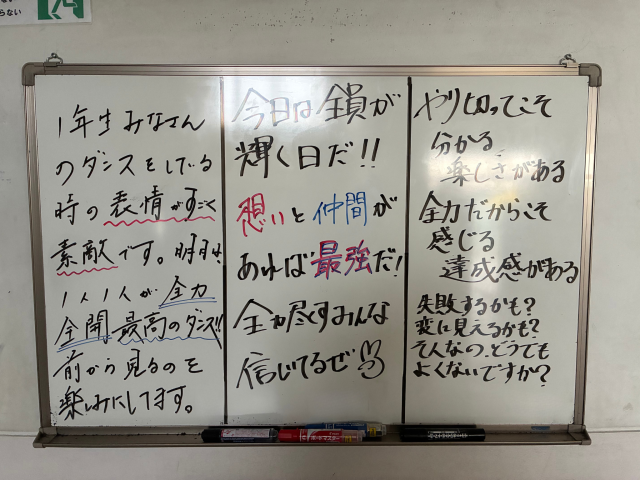 らない
1年生みなさん
のダンスをしている
時の表情がすごく
素敵です。明日は、
1人1人が全力
全開、最高のダンス!!
前から見るのを
楽しみにしてます。
今日は全員が
輝く日だ!!
想いと仲間が
あれば最強だ!
全力尽くすみんな
信じてるぜ
やり切ってこそ
分かる
楽しさがある
全力だからこそ
感じる
達成感がある
失敗するかも?
変に見えるかも?
そんなの、どうでも
よくないですか?
ボードマスター